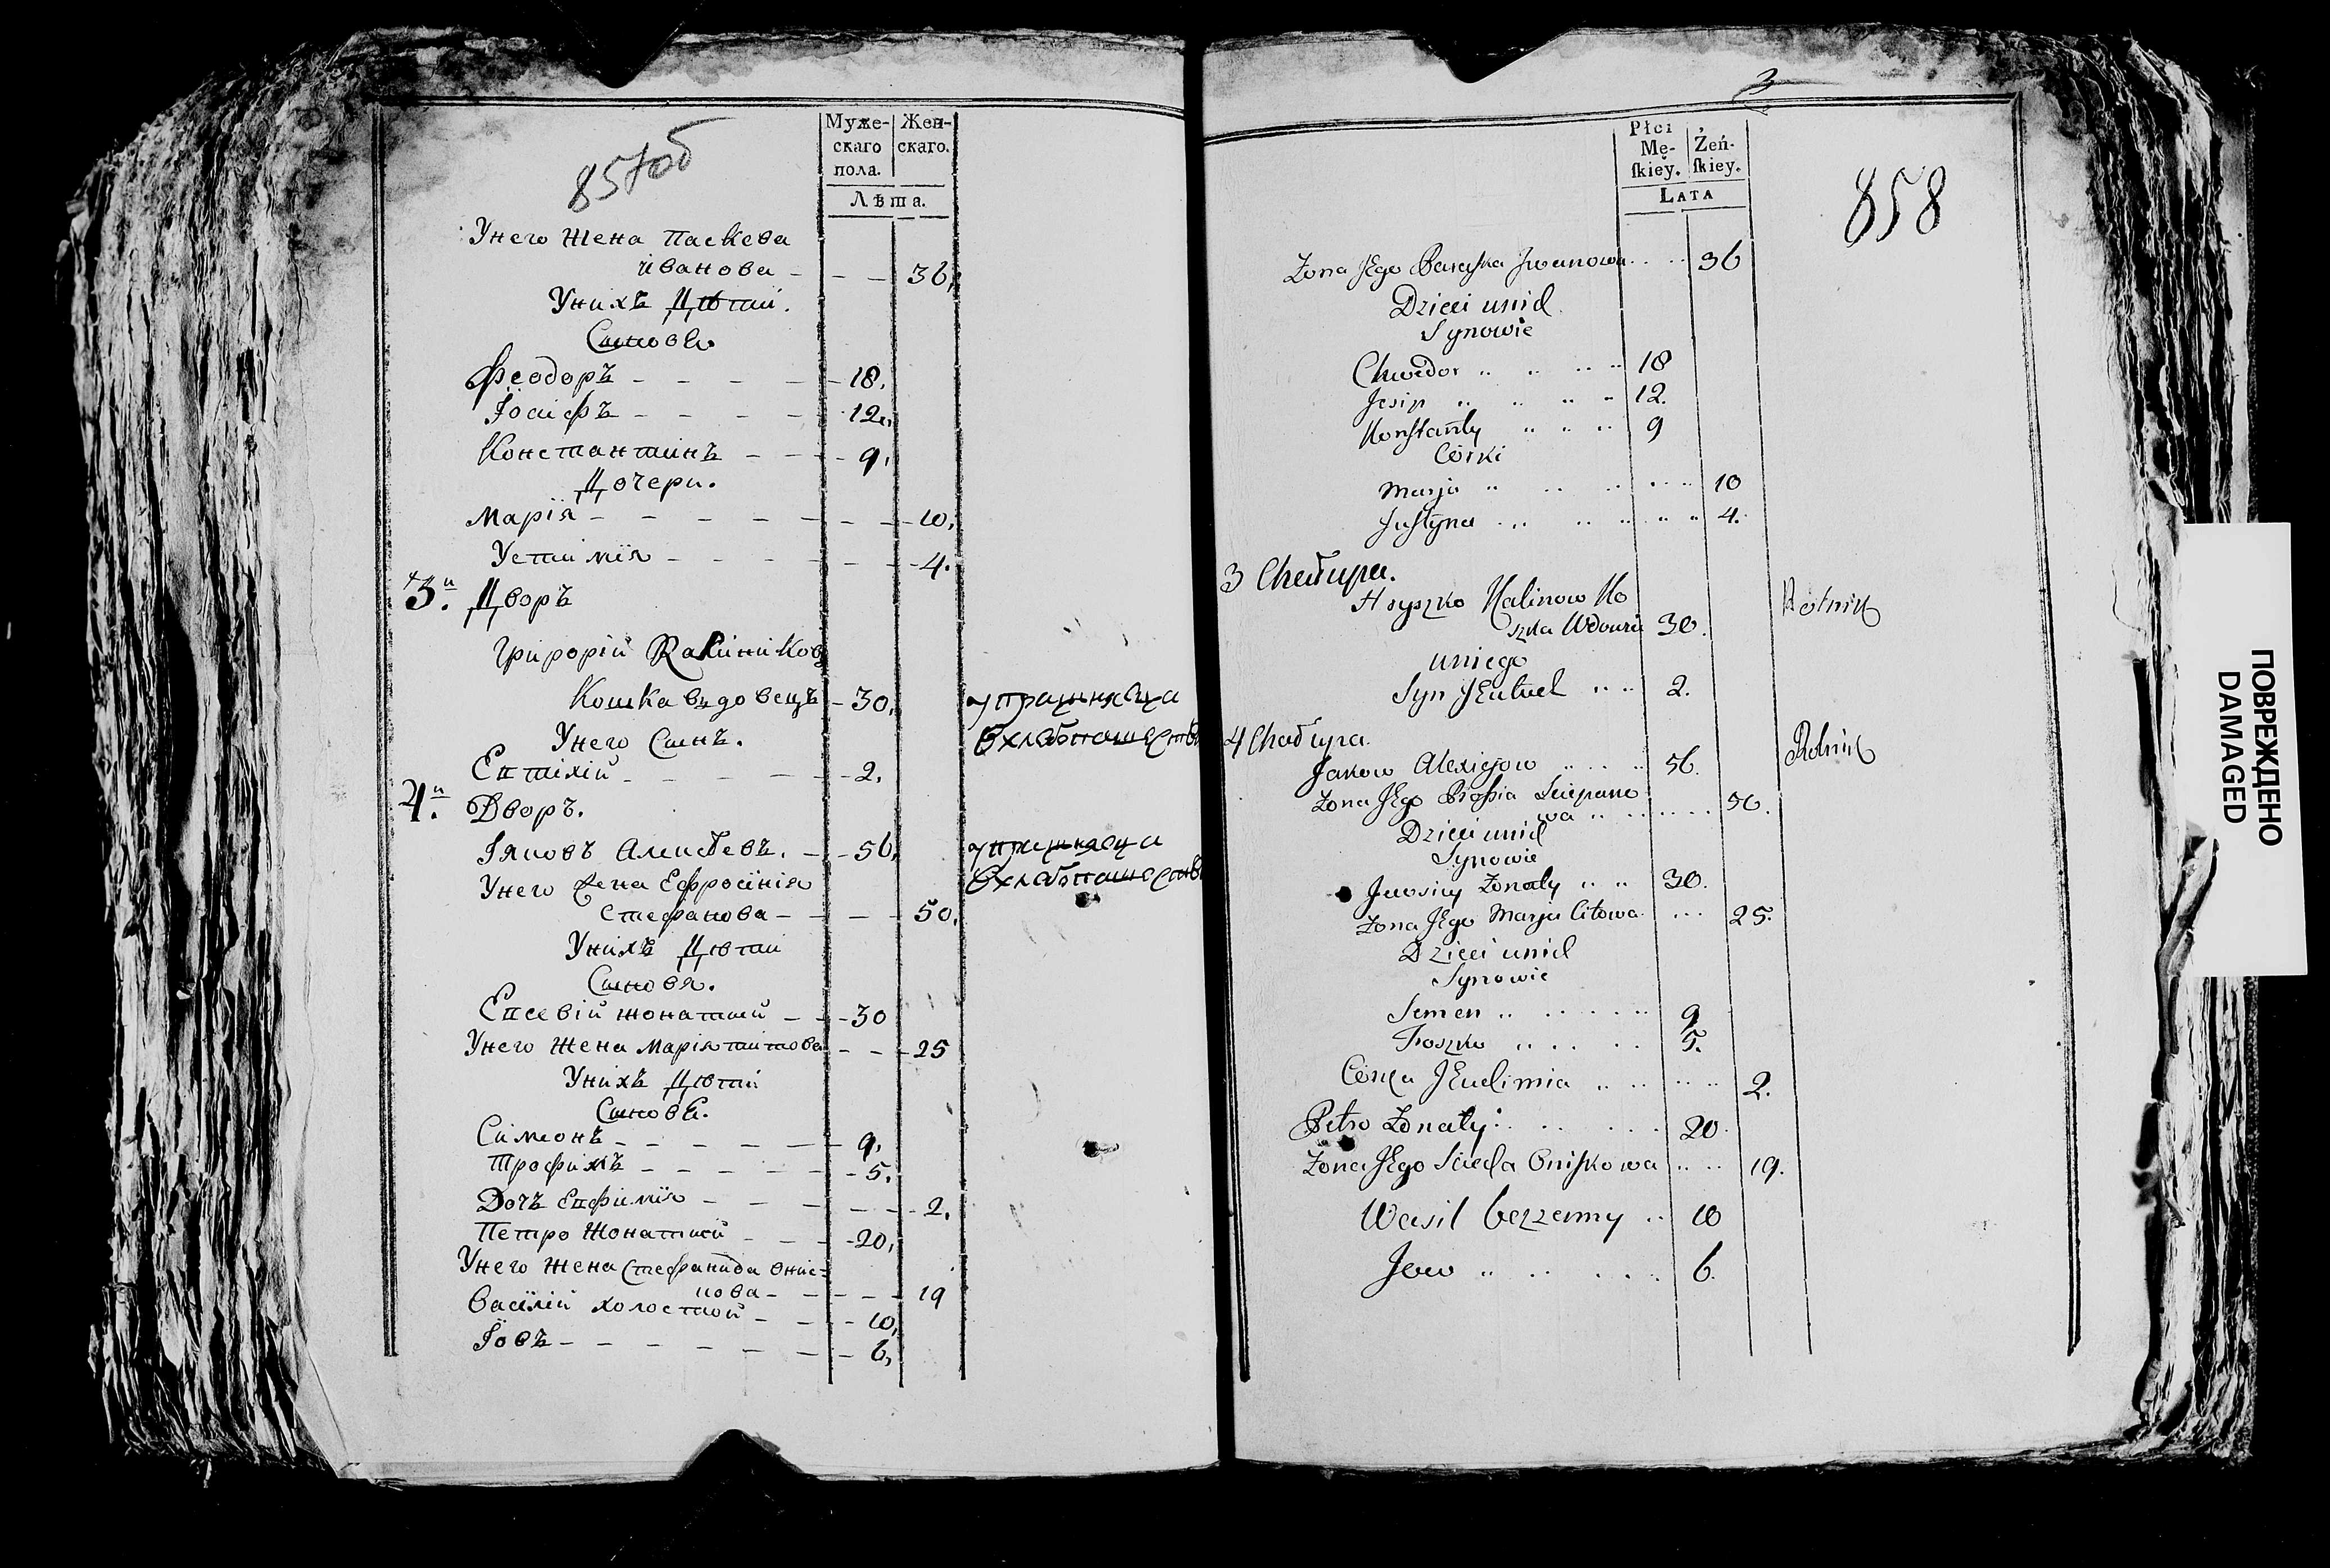 857об
Муже-
скаго
пола.
Жен-
скаго.
Лѣта.
Унего жена Паскева
иванова - - - 36,
Унихъ Дѣти.
Синове.
Феодоръ - - - - 18,
Іосифъ - - - - 12,
Константинъ - - - 9,
Дочери.
Марія - - - - - - - 10,
Устимія - - - - - - 4.
3й. Дворъ
Григорій Калиников
Кошка вдовецъ - 30, упражняется
Унего Синъ. Вхлѣбопашестве
Евтіхій - - - - 2,
4й. Дворъ.
Іяковъ Алексѣевъ. - - 56, упражняется
Унего жена Ефросинія Вхлѣбопашестве
Стефанова - - - 50,
Унихъ Дѣти
Синовя.
Евсевій жонатий - - 30
Унего жена Марія титова - - - 25
Унихъ Дѣти
Синовѣ.
Симеонъ - - - - - 9,
Трофимъ - - - - - 5,
Дочъ Евфимія - - - - - 2,
Петро жонатий - - - 20,
Унего жена Стефанида Онис=
кова - - - - 19
Василій холостой - - - 10,
Іовъ - - - - - - - 6,
3
858
Płci
Mę-
ſkiey.
Żeń-
ſkiey.
LATA
Żona Jego Paraska Jwanowa .. .. 36
Dzieci unich
Synowie
Chwedor .. .. .. .. 18
Jesip .. .. .. .. 12.
Konstanty .. .. .. 9
Córki
Marja .. .. .. .. .. 10
Justyna .. .. .. .. .. 4.
3 Chałupa.
Hryszko Kalinow Ko Rolnik
szka Wdowiec 30.
uniego
Syn JEutuch .. .. 2.
4 Chałupa. Rolnik
Jakow Alexiejow .. .. .. 56.
Żona JEgo Prosia Sciepano
wa .. .. .. .. 50.
Dzieci unich
Synowie
Jewsiey Żonaty .. .. 30.
Żona JEgo Marja Citowa. ... 25.
Dzieci unich
Synowie
Semen .. .. .. .. 9
Troszko .. .. .. .. 5.
Córka JEudimia .. .. .. .. 2.
Petro Żonaty .. .. .. 20.
Żona JEgo Sciecha Oniskowa .. .. 19.
Wasil bezzenny .. 10
Jow .. .. .. .. 6.
ПОВРЕЖДЕНО
DAMAGED